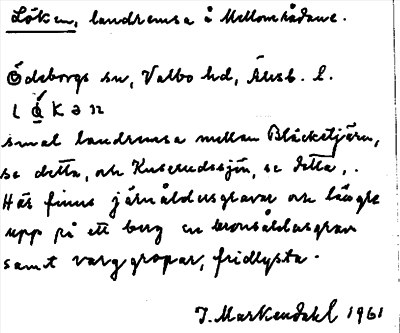 Löken, landremsa å Mellområdane.
Ödeborgs sn, Valbo hd, Älvsb. l.
l ǫ́ K ə n
smal landremsa mellan Bläcketjärn,
se detta, och Kuserudssjön, se detta,.
Här finns järnåldersgravar och längre
upp på ett berg en bronsåldersgrav
samt varggropar, fridlysta.
J. Markendahl 1961